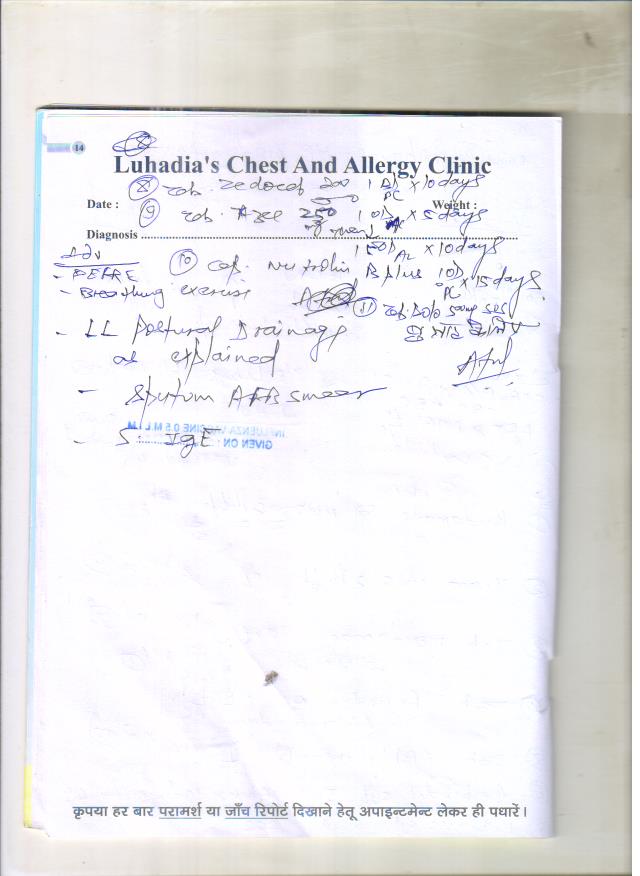 14
Luhadia's Chest And Allergy Clinic
8 Tab. Zedocef 200 1 BD x 10 days
PC
Date : Weight :
9 Tab. Azee 250 1 OD x 5 days
Diagnosis
Adv 1 BD x 10 days
10 Cap. Nutrolin B plus 1 OD x 15 days
PC
- Breathing exercise
11 Tab. Dolo 500mg SOS
- LL Postural Drainage
as explained
- Sputum AFB smear
- S. IgE
INFLUENZA VACCINE 0.5 M.L. I.M.
GIVEN ON :
कृपया हर बार परामर्श या जाँच रिपोर्ट दिखाने हेतू अपाइन्टमेन्ट लेकर ही पधारें ।